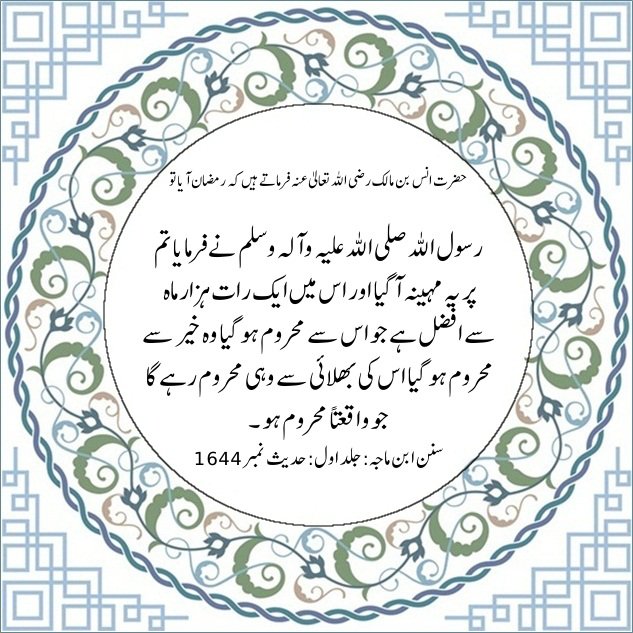 حضرت انس بن مالک رضی اللہ تعالیٰ عنہ فرماتے ہیں کہ رمضان آیا تو
رسول اللہ صلی اللہ علیہ وآلہ وسلم نے فرمایا تم
پر یہ مہینہ آ گیا اور اس میں ایک رات ہزار ماہ
سے افضل ہے جو اس سے محروم ہو گیا وہ خیر سے
محروم ہو گیا اس کی بھلائی سے وہی محروم رہے گا
جو واقعتاً محروم ہو۔
سنن ابن ماجہ: جلد اول: حدیث نمبر 1644